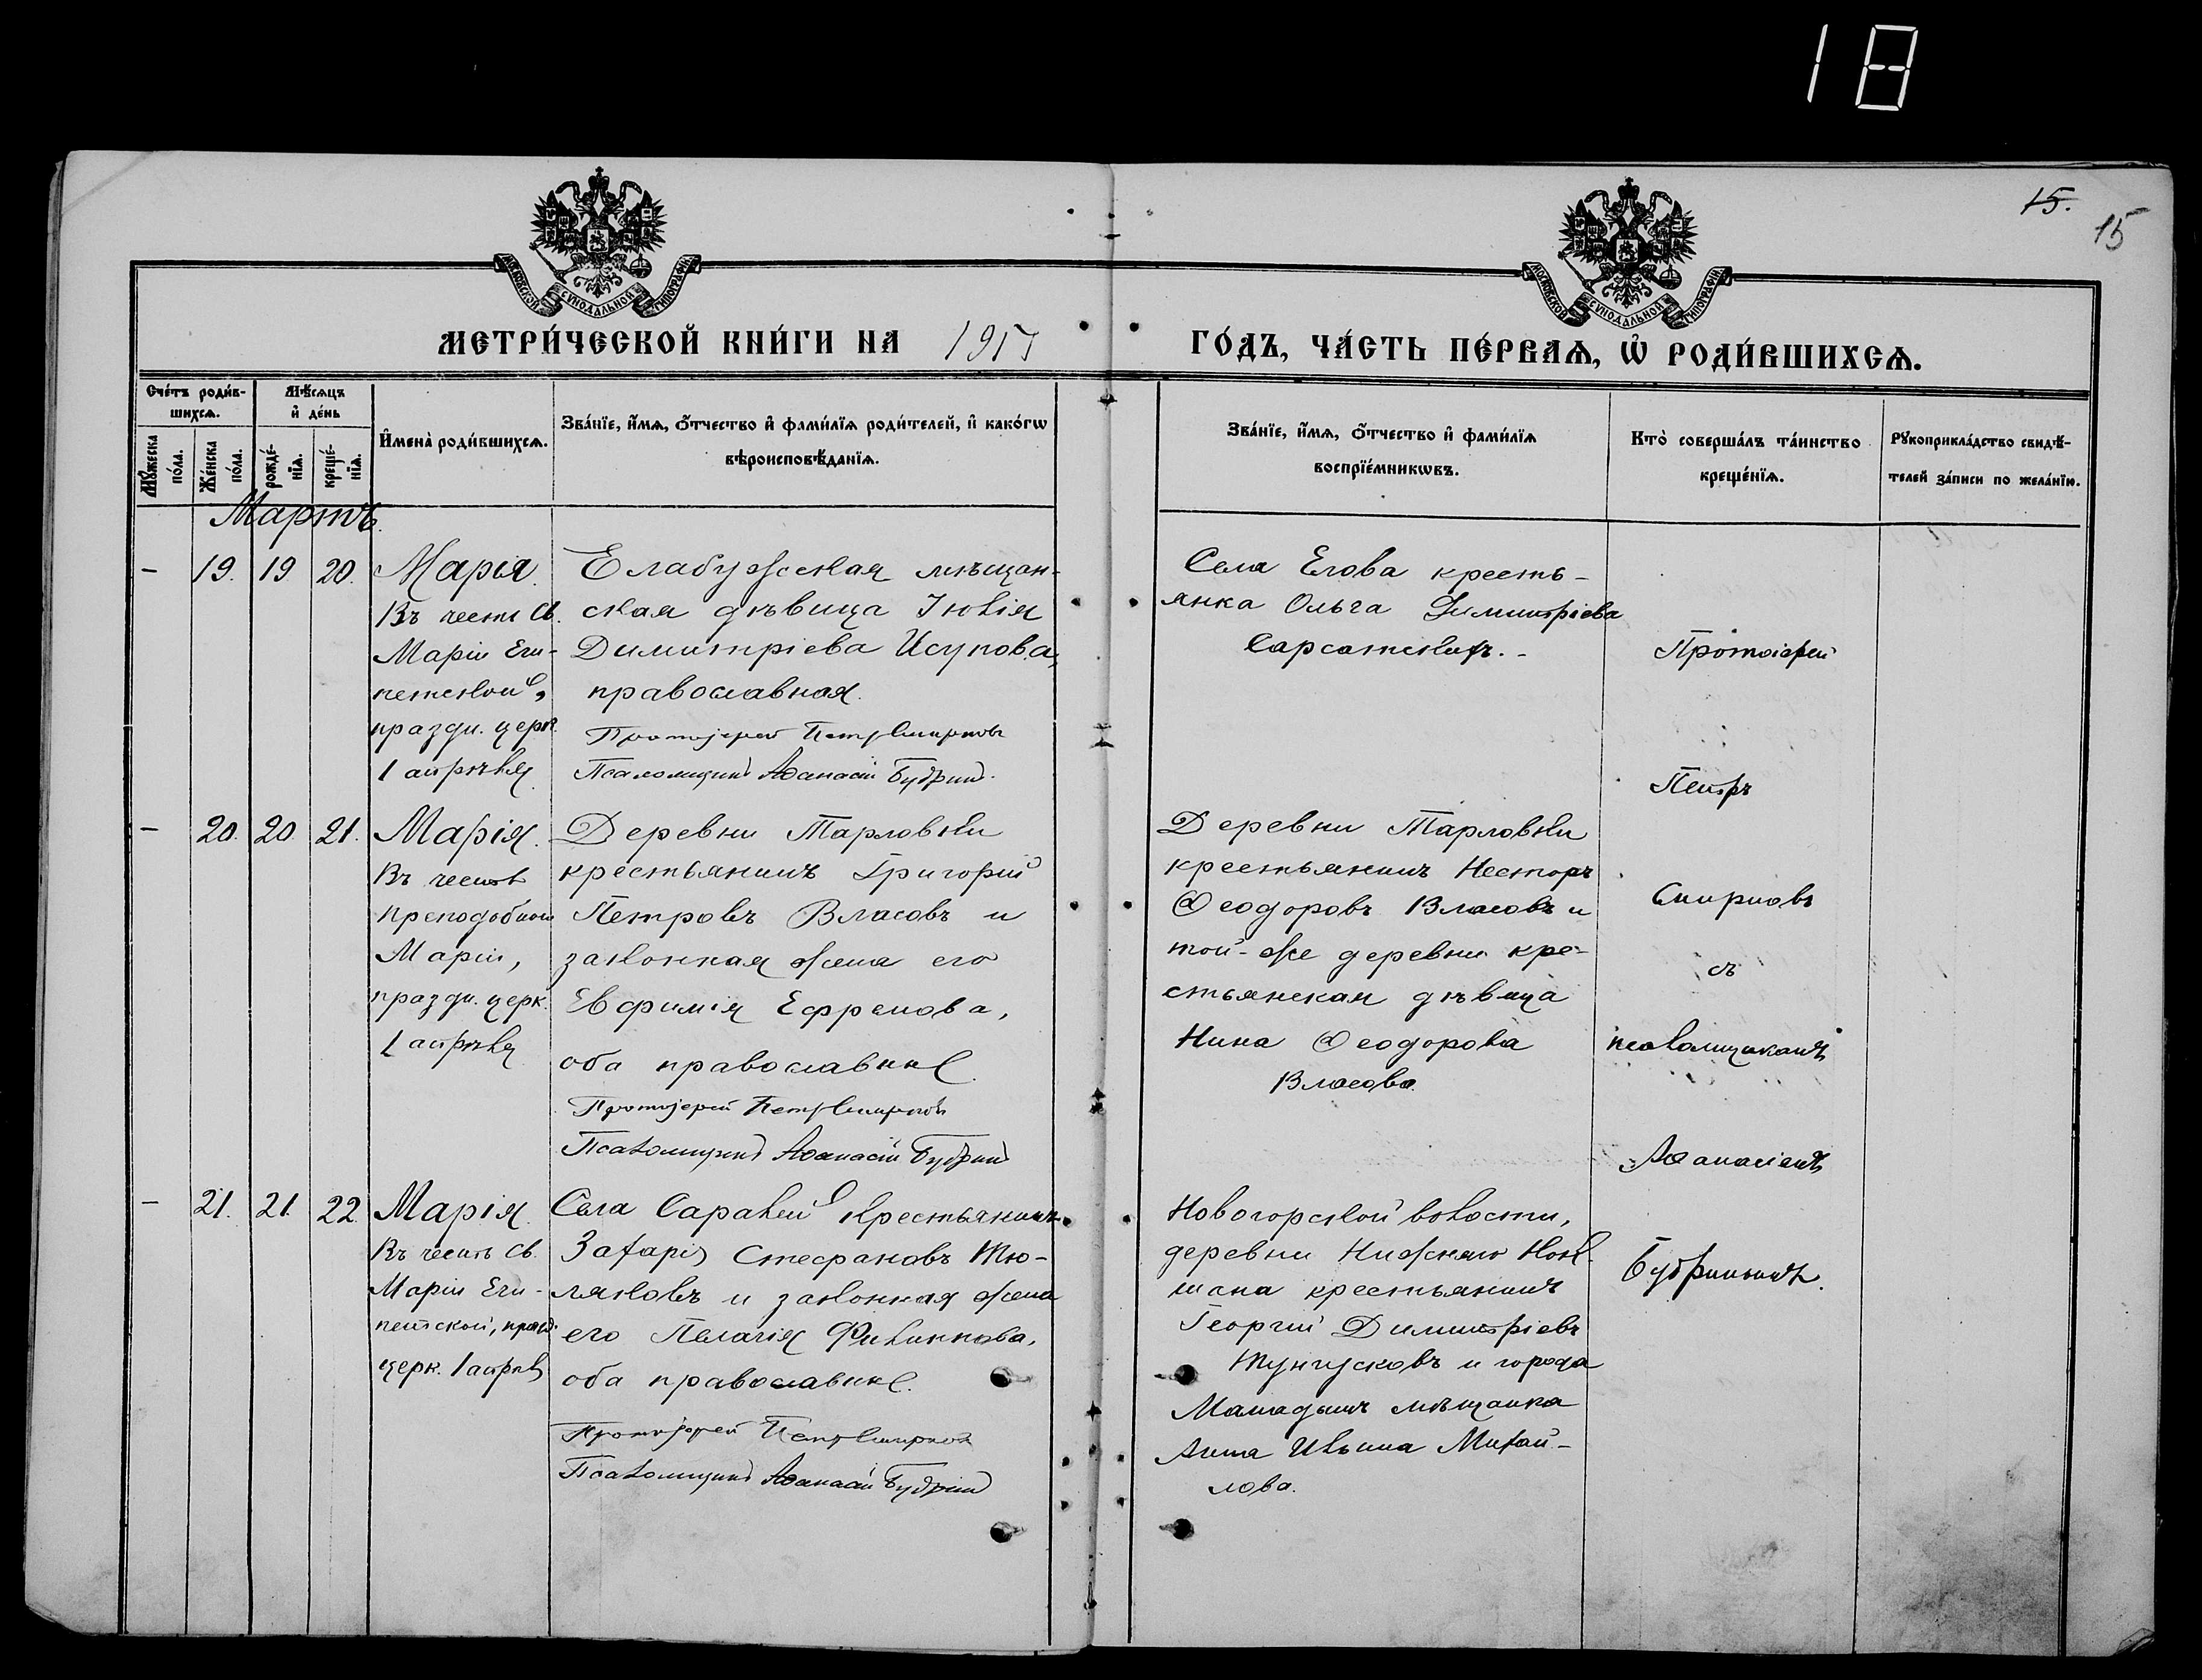 18
15.
15
МОСКОВСКОЙ СУНОДАЛЬНОЙ ТИПОГРАФІИ
МОСКОВСКОЙ СУНОДАЛЬНОЙ ТИПОГРАФІИ
МЕТРИ́ЧЕСКОЙ КНИ́ГИ НА
ГО́ДЪ, ЧА́СТЬ ПЕ́РВАѦ, Ѡ҆ РОДИ́ВШИХСѦ.
Сче́тъ роди́в-
шихсѧ.
Мꙋ́жеска
по́ла.
Же́нска
по́ла.
Мѣ́сѧцъ
и҆ де́нь
рожде́-
нїѧ.
креще́-
нїѧ.
И҆мена̀ роди́вшихсѧ.
Зва́нїе, и҆́мѧ, ѻ҆́тчество и҆ фами́лїѧ роди́телей, и҆ како́гѡ
вѣроисповѣ́данїѧ.
Зва́нїе, и҆́мѧ, ѻ҆́тчество и҆ фами́лїѧ
воспрїе́мникѡвъ.
Кто̀ соверша́лъ та́инство
креще́нїѧ.
Рꙋкоприкла́дство свидѣ́-
телей за́писи по жела́нїю.
Мартъ.
– 19. 19 20.
Марія.
Въ честь св.
Маріи Еги-
петской,
праздн. церк.
1 апрѣля.
Елабужская мѣщан-
ская дѣвица Юлія
Димитріева Исупова,
православная.
Протоіерей Петръ Смирновъ
Псаломщикъ Аѳанасій Будринъ.
Села Елова кресть-
янка Ольга Димитріева
– 20. 20 21.
Марія.
Въ честь
преподобной
Маріи,
праздн. церк.
1 апрѣля
Деревни Тарловки
крестьянинъ Григорій
Петровъ Власовъ и
законная жена его
Евфимія Ефремова,
оба православные.
Протоіерей Петръ Смирновъ
Псаломщикъ Аѳанасій Будринъ
Деревни Тарловки
крестьянинъ Несторъ
Ѳеодоровъ Власовъ и
той-же деревни кре-
стьянская дѣвица
Нина Ѳеодорова
Власова.
– 21. 21. 22.
Марія.
Въ честь св.
Маріи Еги-
петской, празд.
церк. 1 апрѣл
Села Саралей крестьянинъ
Захарій Стефановъ Тю-
ляковъ и законная жена
его Пелагія Филиппова,
оба православные.
Протоіерей Петръ Смирновъ
Псаломщикъ Аѳанасій Будринъ
Новогорской волости,
деревни Нижняго
крестьянинъ
Георгій Димитріевъ
Тунгусковъ и города
Мамадышъ мѣщанка
Анна Ильина Михай-
лова.
Протоіерей
Петръ
Смирновъ
съ
псаломщикомъ
Аѳанасіемъ
Будринымъ.